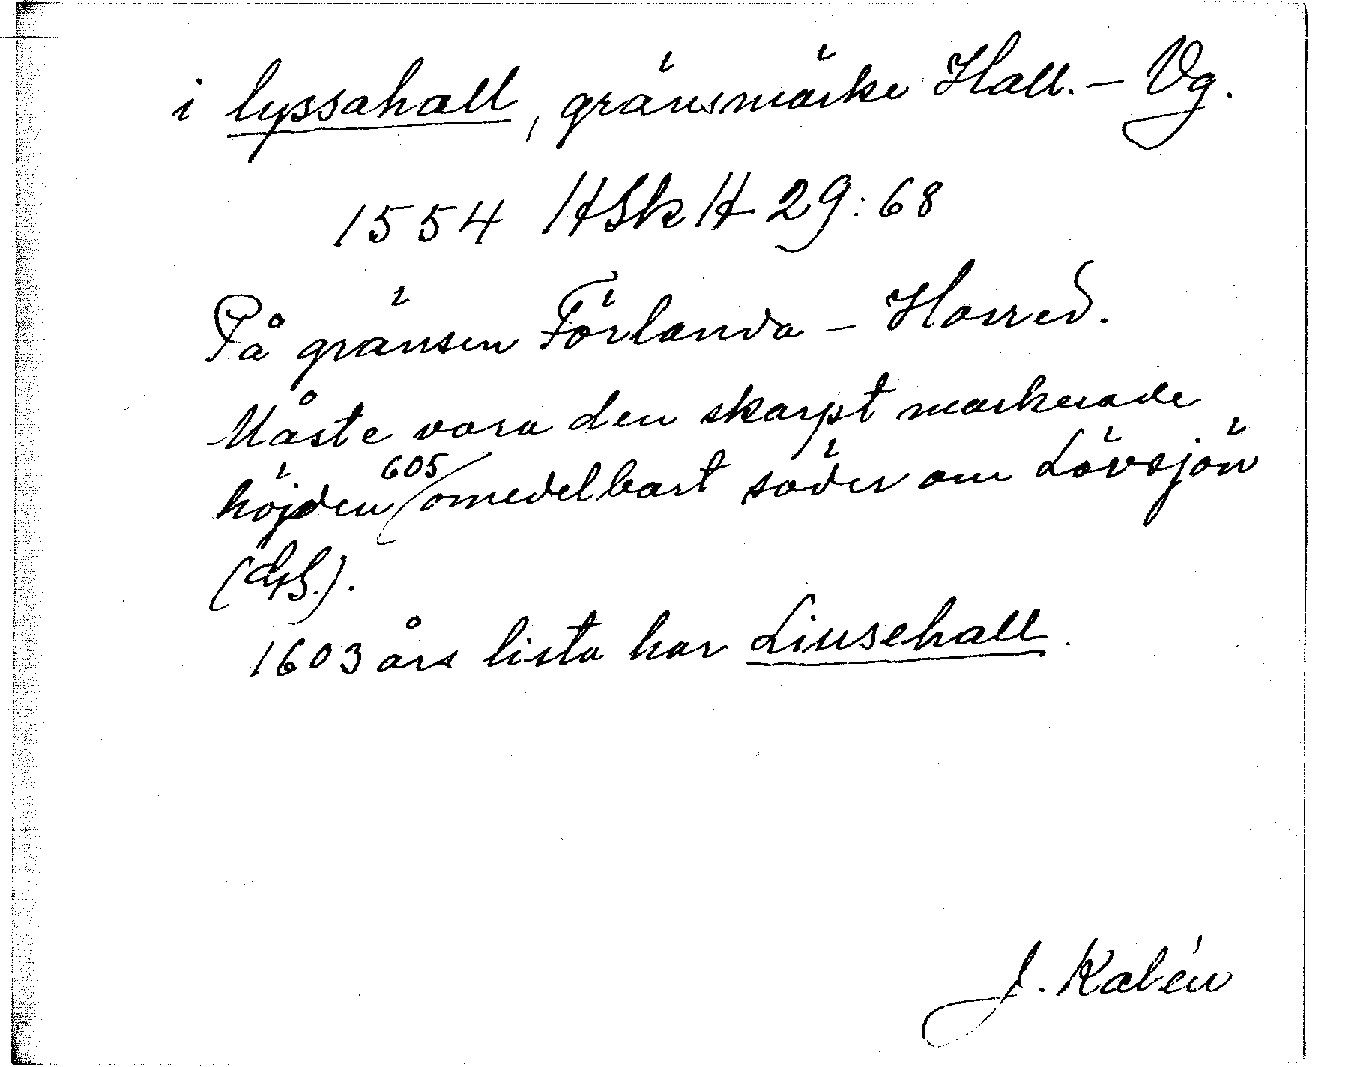 i lyssahall, gränsmärke Hall. – Vg.
1554 HSkH 29:68
På gränsen Förlanda – Horred.
Måste vara den skarpt markerade
höjden 605 omedelbart söder om Lövsjön
(GS.).
1603 års lista har Liusehall.
J. Kalén